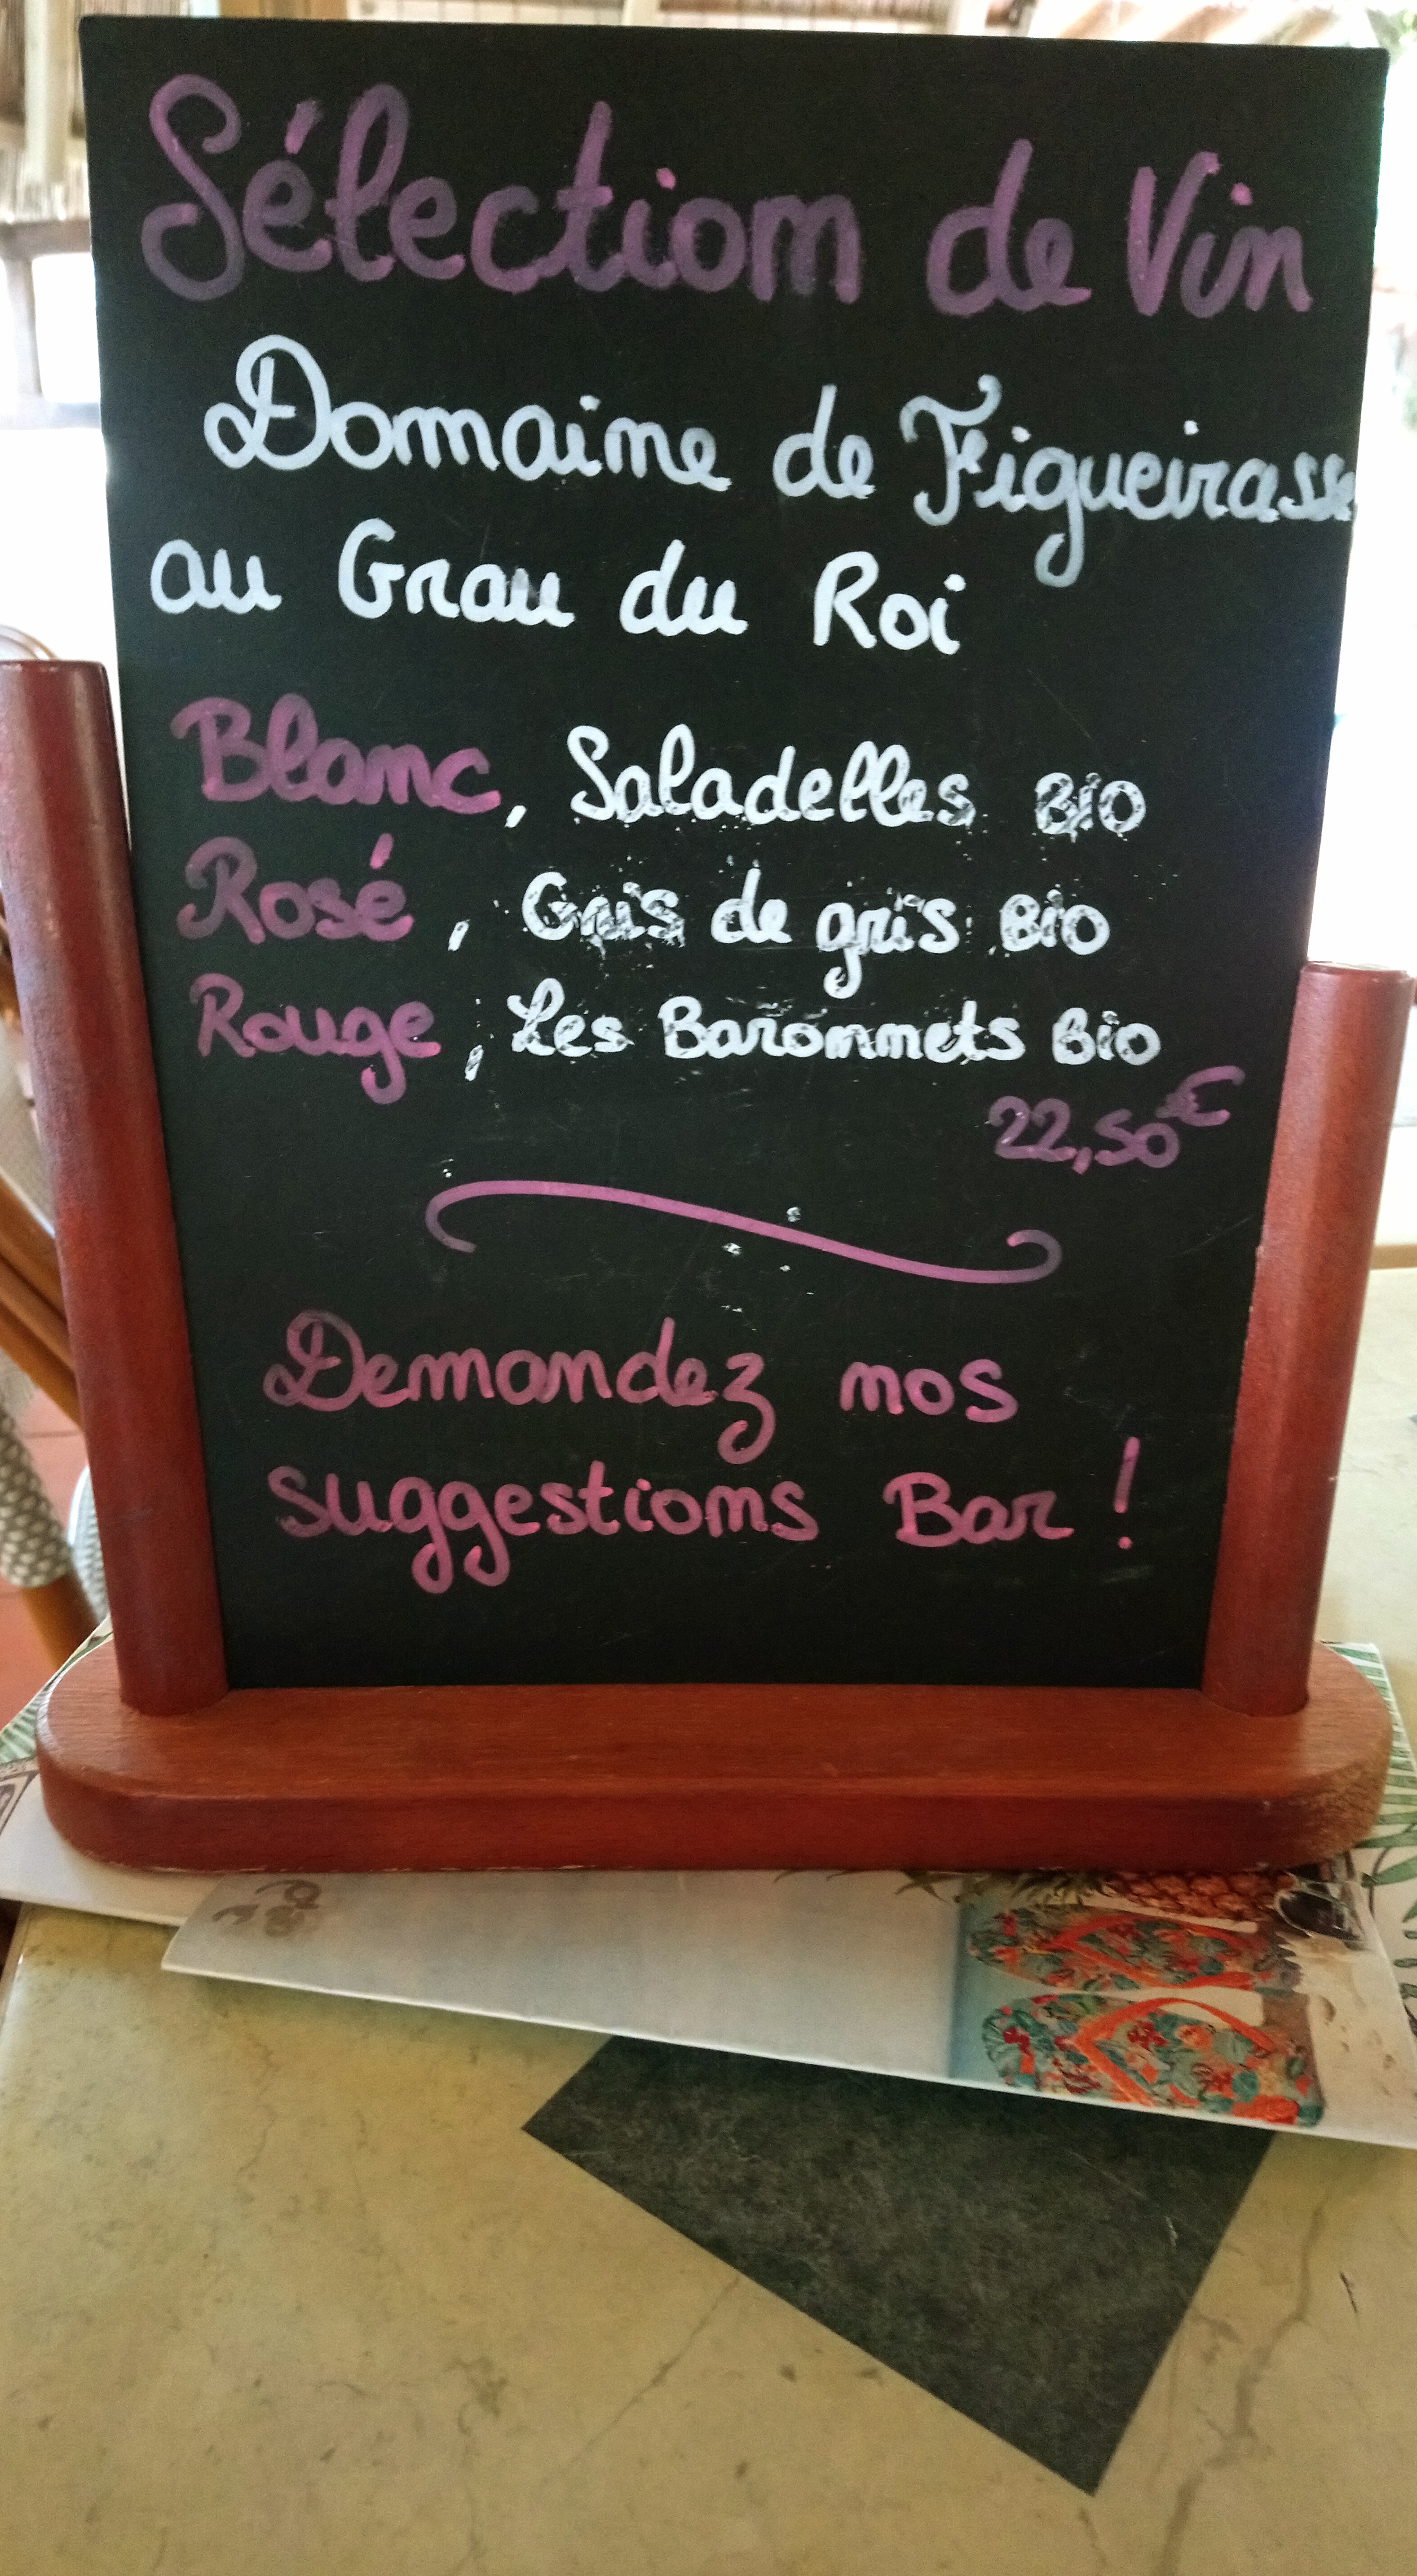 Sélection de Vin
Domaine de Figueirasse
au Grau du Roi
Blanc, Saladelles BIO
Rosé, Gris de gris BIO
Rouge, Les Baronnets Bio
22,50€
Demandez nos
suggestions Bar !